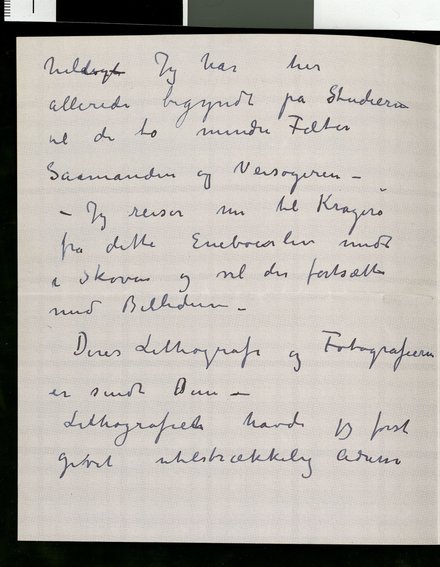 Jeg har her
allerede begyndt på Studierne
til de to mindre Felter
Saamanden og Versogeren –
– Jeg reiser nu til Kragerø
fra dette Eneboerliv midt
i Skoven og vil der fortsætte
med Billederne –
Deres Lithografi og Fotografierne
er sendt Dem –
Lithografiet havde jeg først
givet utilstrækkelig Adresse